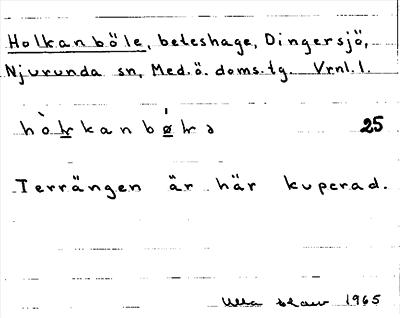 Holkanböle, beteshage, Dingersjö,
Njurunda sn, Med.ö. doms.tg. Vrnl.l.
hòl̵kanbǿl̵ə 25
Terrängen är här kuperad.
Ulla 1965